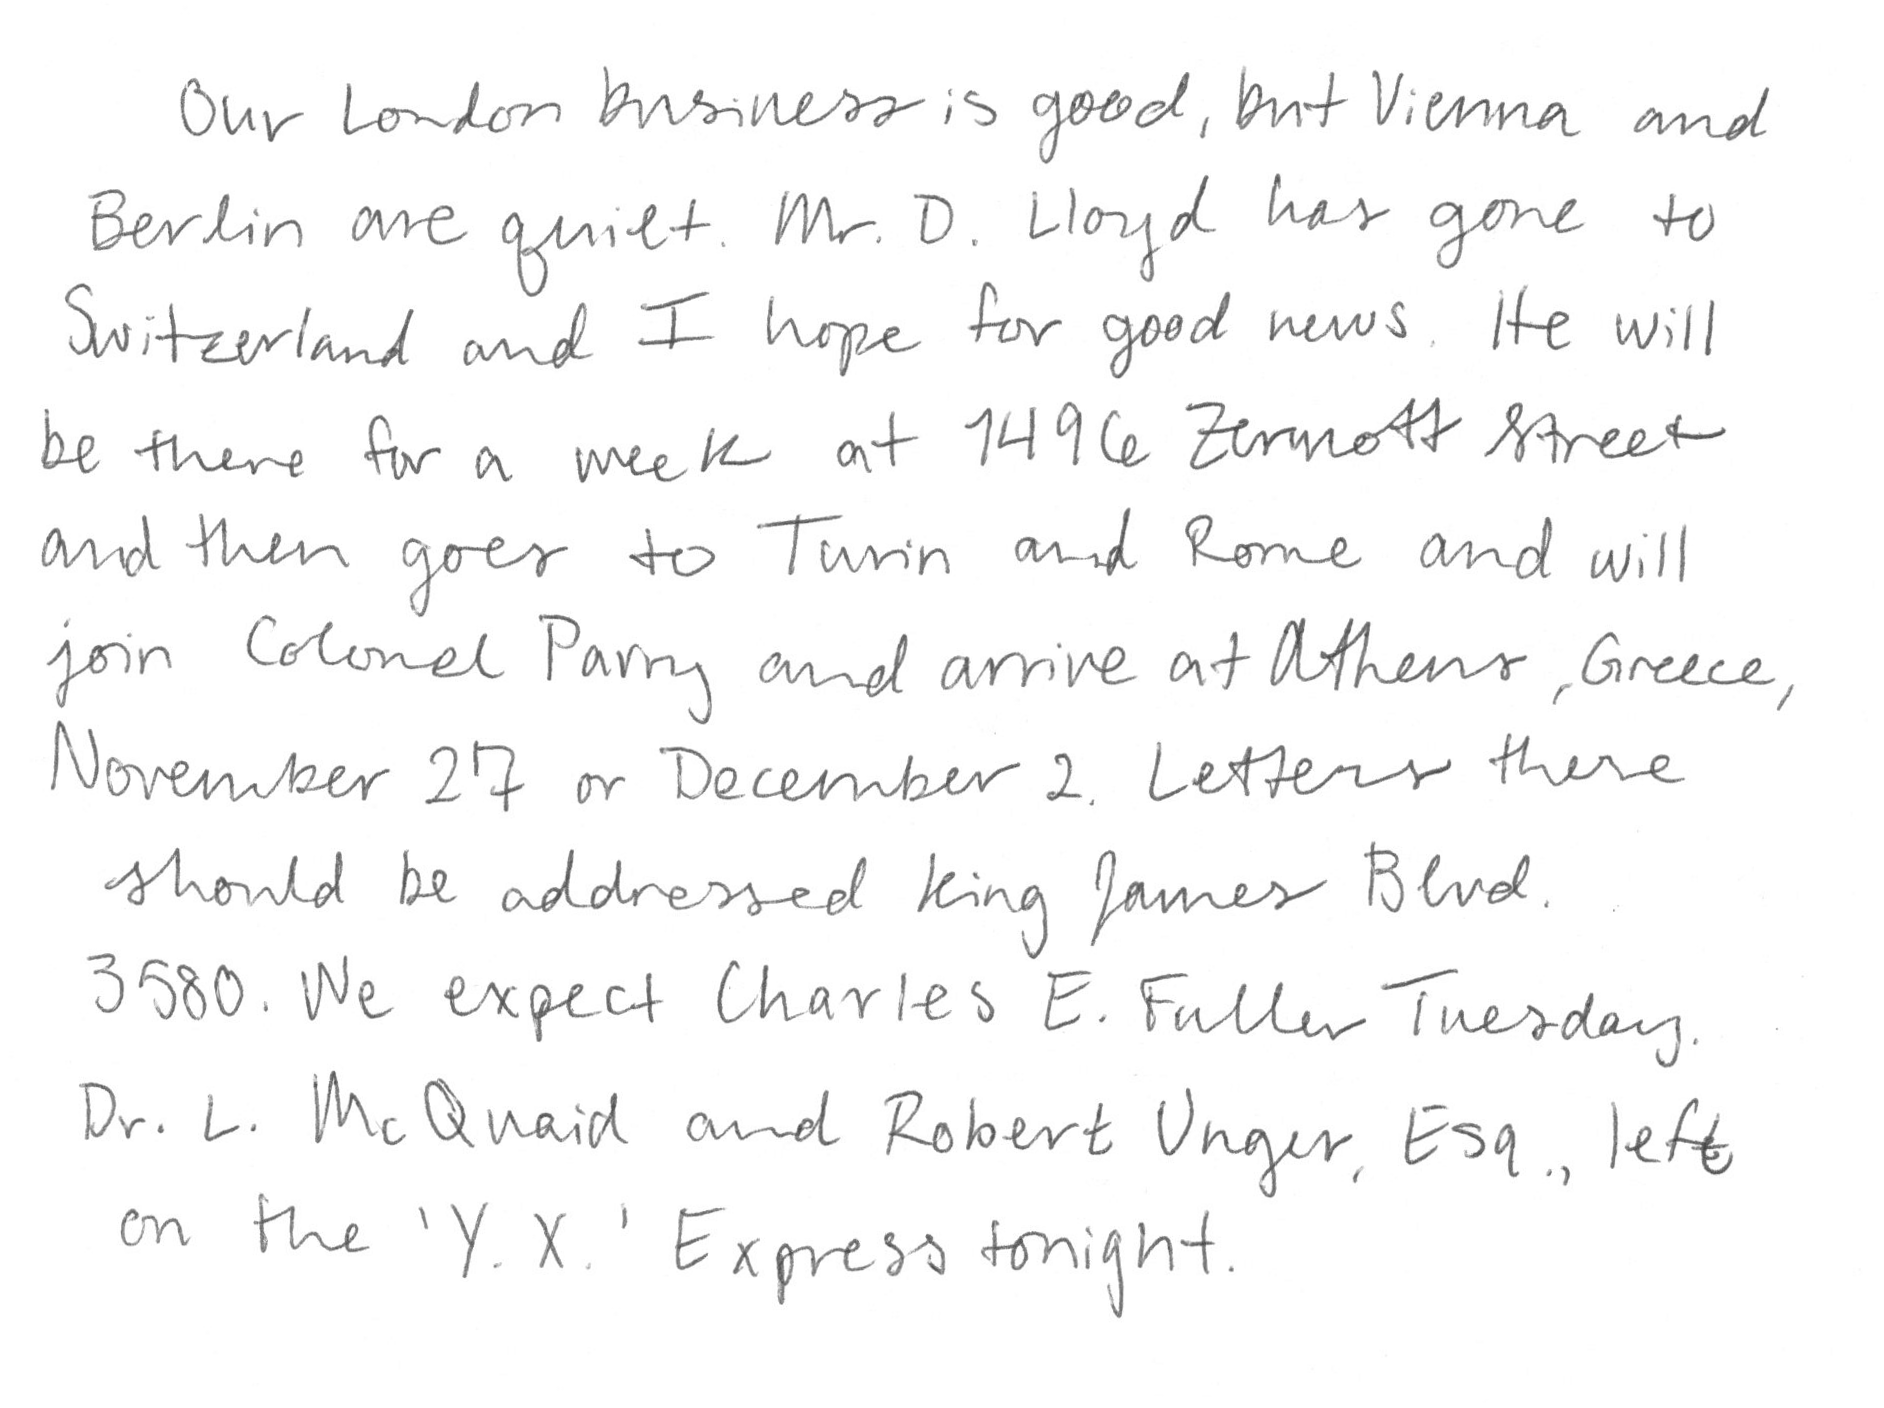 Our London business is good, but Vienna and
Berlin are quiet. Mr. D. Lloyd has gone to
Switzerland and I hope for good news. He will
be there for a week at 1496 Zermott Street
and then goes to Turin and Rome and will
join Colonel Parry and arrive at Athens, Greece,
November 27 or December 2. Letters there
should be addressed King James Blvd.
3580. We expect Charles E. Fuller Tuesday.
Dr. L. McQuaid and Robert Unger, Esq., left
on the 'Y. X.' Express tonight.